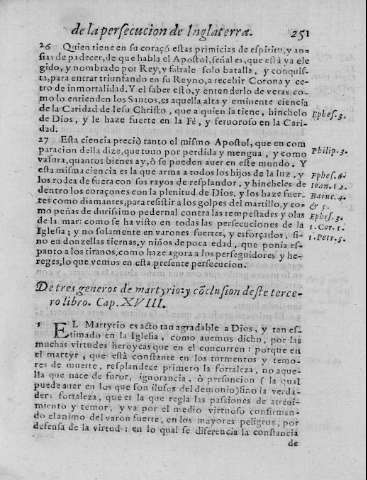 de la persecucion de Inglaterra. 251
26 Quien tiene en su coraçõ estas primicias de espiritu, y an-
sias de padecer, de que habla el Apostol, señal es, que está ya ele
gido, y nombrado por Rey, y faltale solo batalla, y conquis-
ta, para entrar triunfando en su Reyno, a recebir Corona y ce-
tro de inmortalidad. Y el saber esto, y entenderlo de veras co-
mo lo entienden los Santos, es aquella alta y eminente ciencia
de la Caridad de Iesu Christo, que a quien la tiene, hinchelo
de Dios, y le haze fuerte en la Fé, y feruoroso en la Cari-
dad.
Ephes. 3.
27 Esta ciencia preciò tanto el mismo Apostol, que en com
paracion della dize, que tuuo por perdida y mengua, y como
vasora, quantos bienes ay, ò se pueden auer en este mundo. Y
esta misma ciencia es la que arma a todos los hijos de la luz, y
los rodea de fuera con sus rayos de resplandor, y hincheles de
dentro los coraçones con la plenitud de Dios, y los haze fuer-
tes como diamantes, para resistir a los golpes del martillo, y co-
mo peñas de durissimo pedernal contra las tempestades y olas
de la mar: como se ha visto en todas las persecuciones de la
Iglesia; y no solamente en varones fuertes, y esforçados, si-
no en donzellas tiernas, y niños de poca edad, que ponia es-
panto a los tiranos, como haze agora a los perseguidores y he-
reges, lo que vemos en esta presente persecucion.
Philip. 3.
Ephes. 6.
Ioan. 12.
& 5.
Ephes. 3.
1. Cor. 1.
1. Petr. 5.
De tres generos de martyrio; y cõclusion deste terce-
ro libro. Cap. XVIII.
1 EL Martyrio es acto tan agradable a Dios, y tan es-
timado en la Iglesia, como auemos dicho, por las
muchas virtudes heroycas que en el concurren: porque en
el martyr, que está constante en los tormentos y temo-
res de muerte, resplandece primero la fortaleza, no aque-
lla que nace de furor, ignorancia, ò presuncion (la qual
puede auer en los que son ilusos del demonio) sino la verda-
dera fortaleza, que es la que regla las passiones de atreui-
miento y temor, y va por el medio virtuoso confirman-
do el animo del varon fuerte, en los mayores peligros, por
defensa de la virtud: en lo qual se diferencia la constancia
de